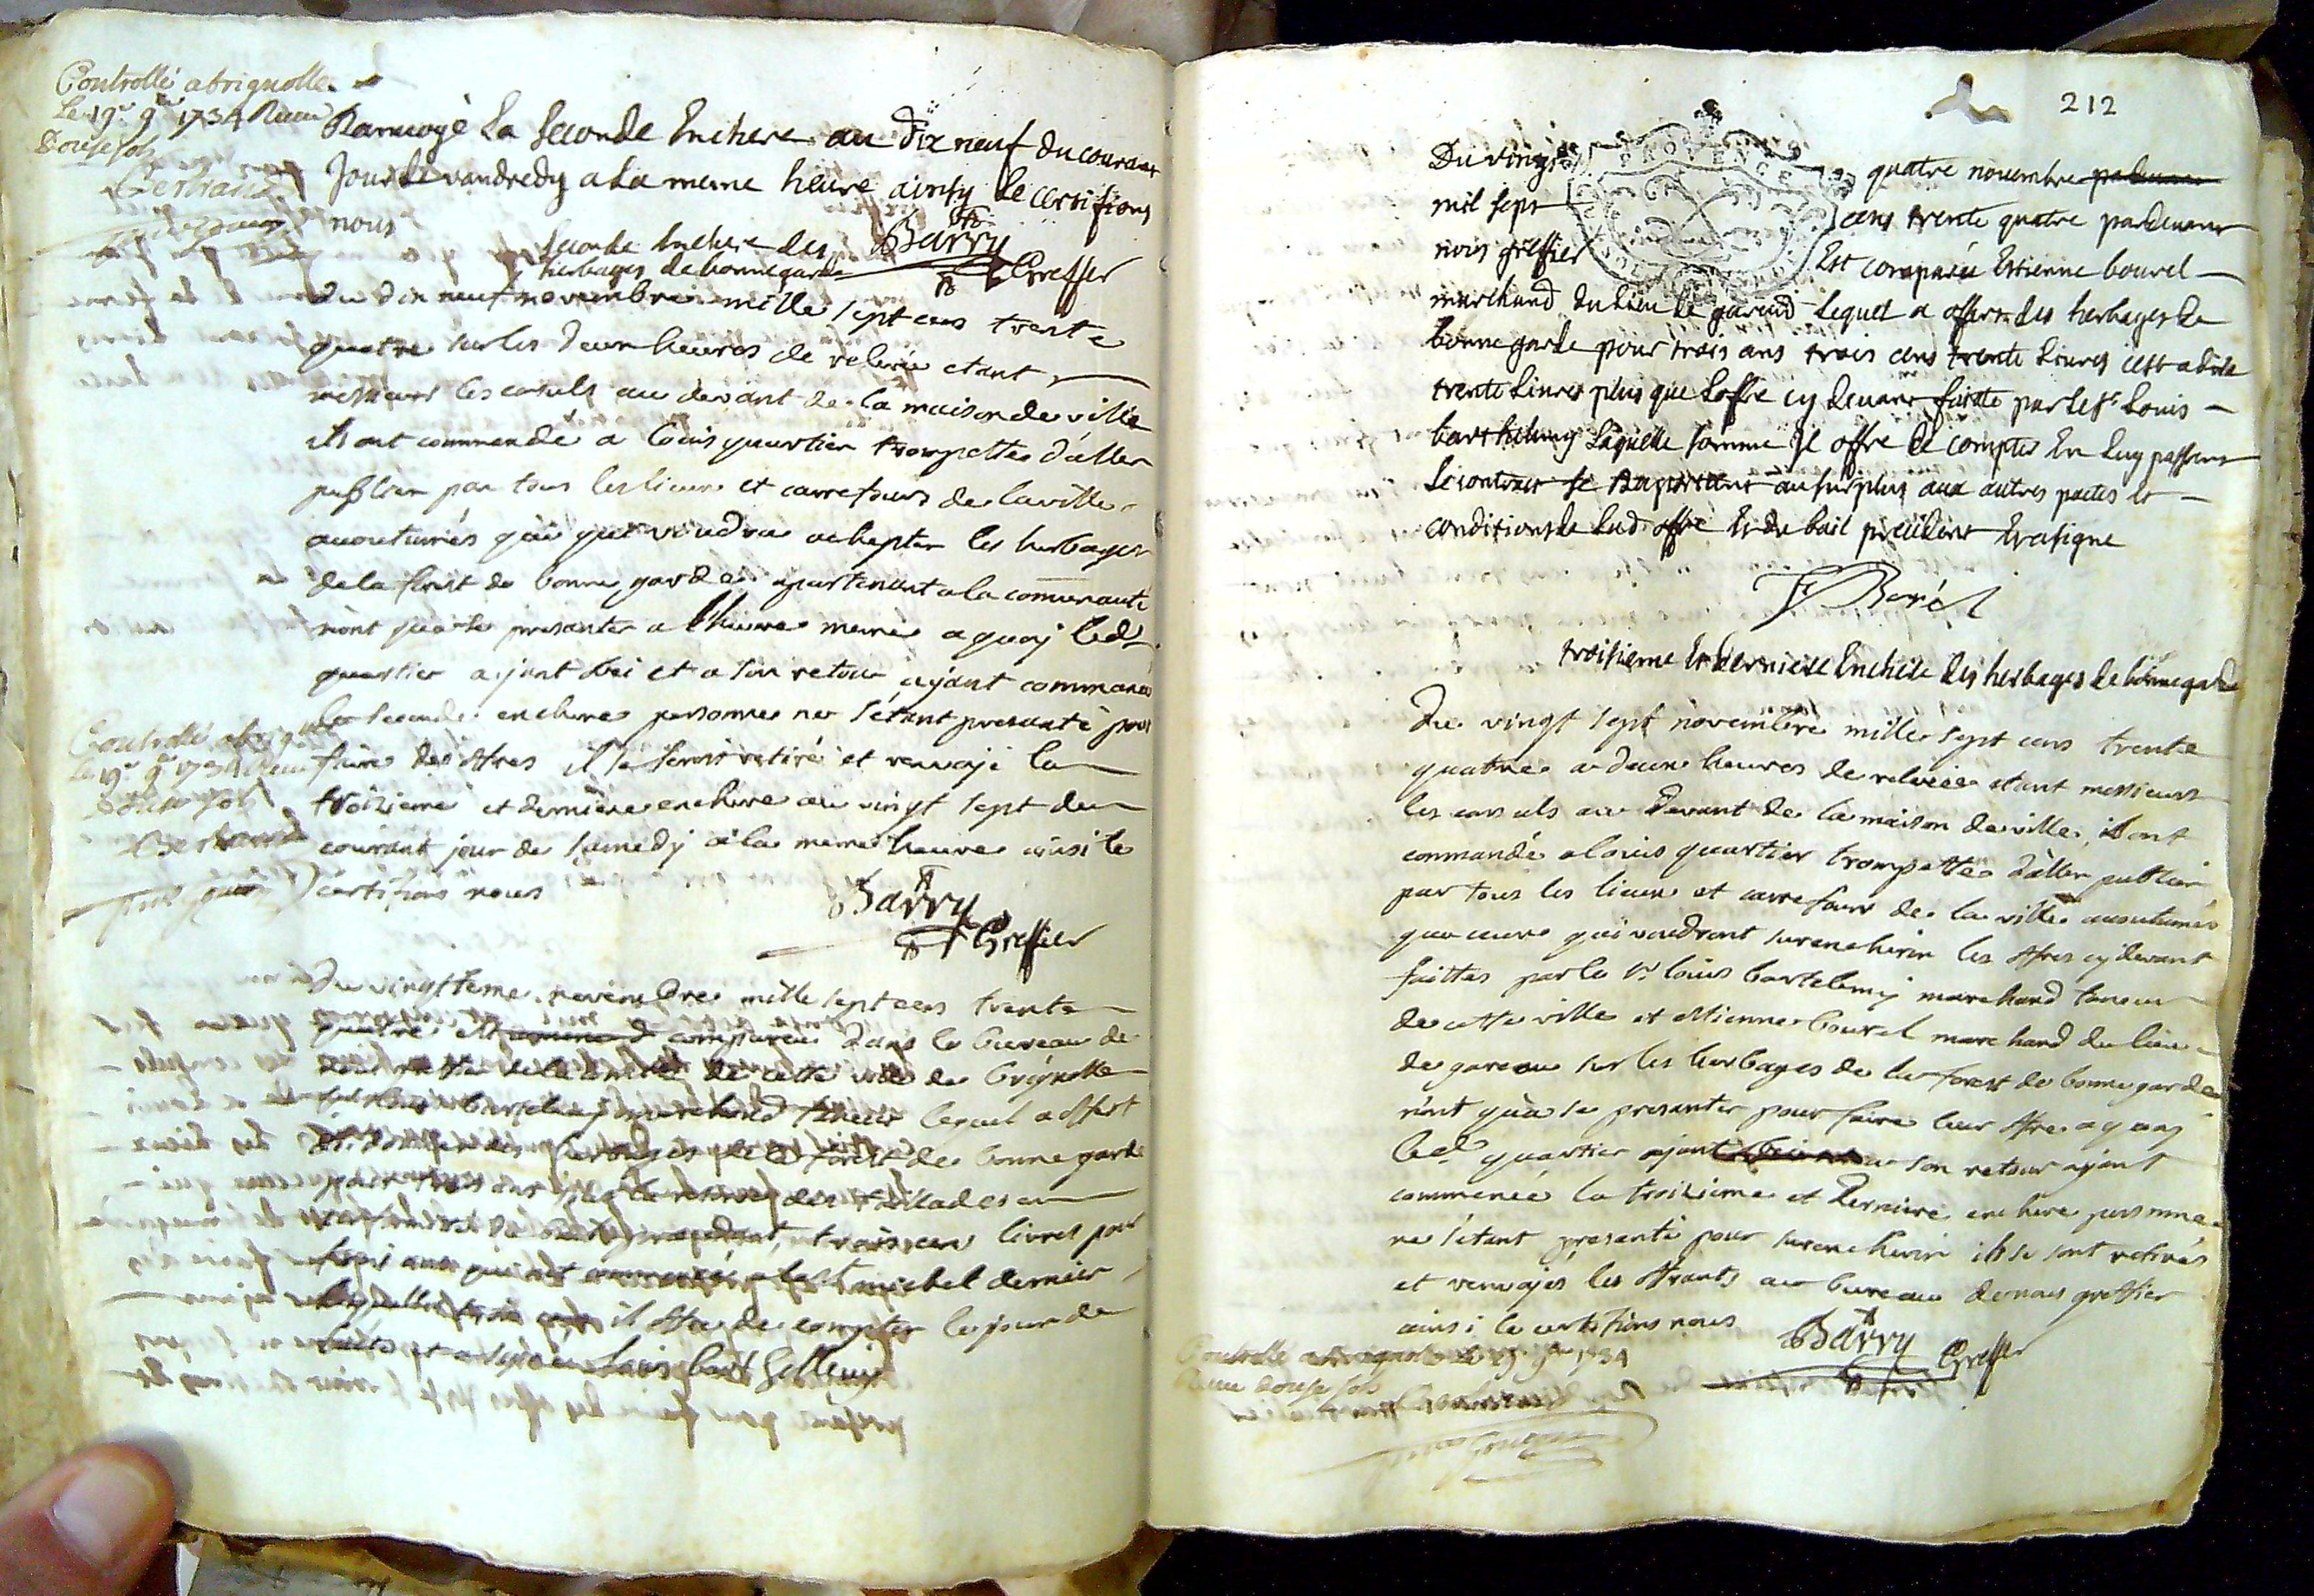 Controllé a brignolle
Le 19e 9bre 1734 Receu
Douse sols
Bertrand
Ranvoyé La Seconde Enchere au Dix neuf du courant
Jour de vandredy a La meme heure ainsy Le certifions
nous
Barry
Greffier
Seconde Enchere des
herbages de bonnegarde
du dix neuf novembre mille sept cens trente
quatre sur les deux heures de relevée etant
messieurs les consuls au devant de la maison de ville
ils ont commendé a Louis quartier trompette d'aller
publier par tous les lieux et carrefours de la ville
acoutumés que qui voudra achepter les herbages
de la forest de bonne garde apartenant a la comunauté
n'ont qu'a se presanter a l'heure meme a quoy led
quartier ajant obei et a son retour ajant commancé
la seconde enchere personne ne s'etant presanté pour
faire des offres il se seroit retiré et renvoje la
troizieme et derniere enchere au vingt sept du
courant jour de samedy a la meme heure ainsi le
certifions nous
Barry
Greffier
Controllé a brignolle
Le 19e 9bre 1734 Receu
Douse sols
Bertrand
Du vingtieme novembre mille sept cens trente
quatre est comparu dans le bureau de
de cette ville de brignolle
Louis Bartelemy marchand taneur lequel a offert
des herbages de la forest de bonne garde
pour trois ans sous la reserve des taillades en
trois cens livres pour
trois ans qui ont commencé a la St michel dernier
il offre de compter le jour de
et a signé Louis Barthellemy
212
PROVENCE
Du vingt quatre novembre
mil sept cens trente quatre pardevant
nous greffier Est comparu Estienne bourel
marchand du Lieu de gareoud Lequel a offert des herbages de
bonnegarde pour trois ans trois cens trente Livres cest a dire
trente Livres plus que Loffre cy devant faitte par Le Sr Louis
barthelemy Laquelle somme Il offre de compter En Luy passant
Le contract se raportant au surplus aux autres pactes et
conditions de Lad offre Et du bail precedent Et a signé
Borél
troisieme Et derniere Enchere des herbages de bonnegarde
Du vingt sept novembre mille sept cens trente
quatre a deux heures de relevée etant messieurs
les consuls au devant de la maison de ville, ils ont
commandé a louis quartier trompette d'aller publier
par tous les lieux et carrefours de la ville acoutumés
que ceux qui voudront surencherir les offres cy devant
faittes par le Sr louis bartelemy marchand taneur
de cette ville et estienne bourel marchand du lieu
de gareou sur les herbages de la forest de bonne garde
n'ont qu'a se presanter pour faire leur offre a quoy
led quartier ajant a son retour ajant
commencé la troizieme et derniere enchere personne
ne s'etant presanté pour surencherir ils se sont retirés
et renvojés les offrants au bureau de nous greffier
ainsi le certifions nous
Barry
Greffier
Controllé a brignolle Le 29 9bre 1734
Receu douse sols